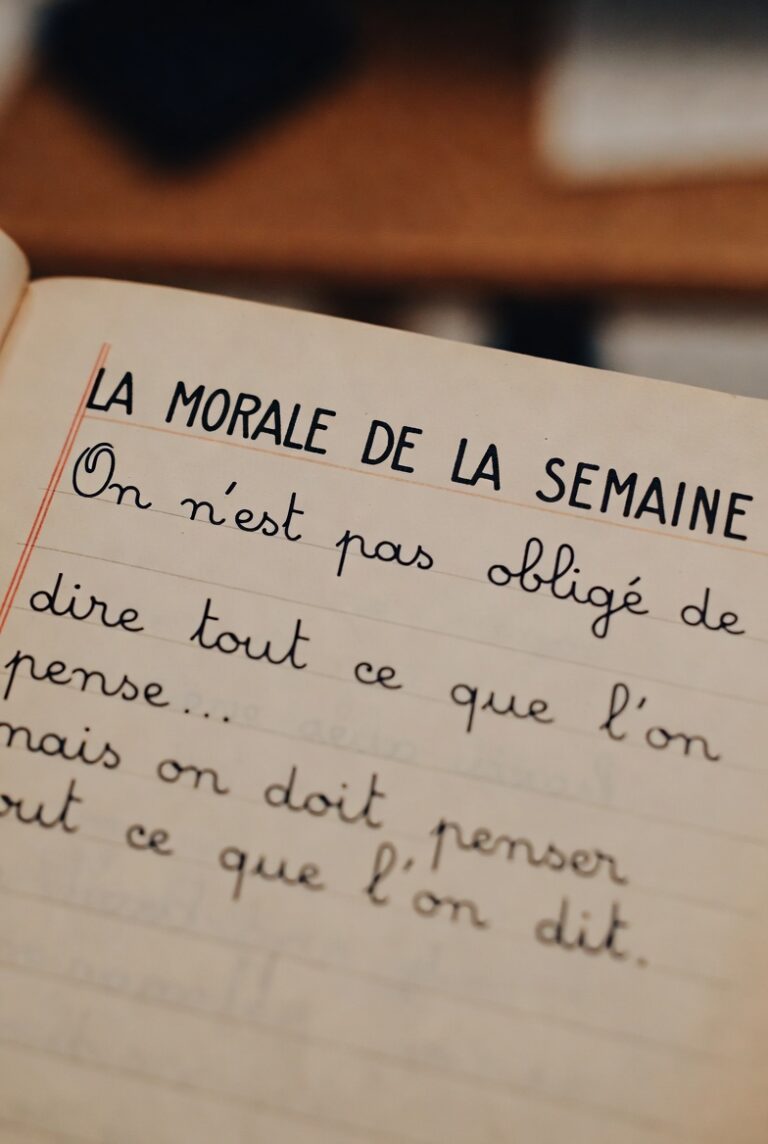 LA MORALE DE LA SEMAINE
On n'est pas obligé de
dire tout ce que l'on
pense...
mais on doit penser
out ce que l'on dit.